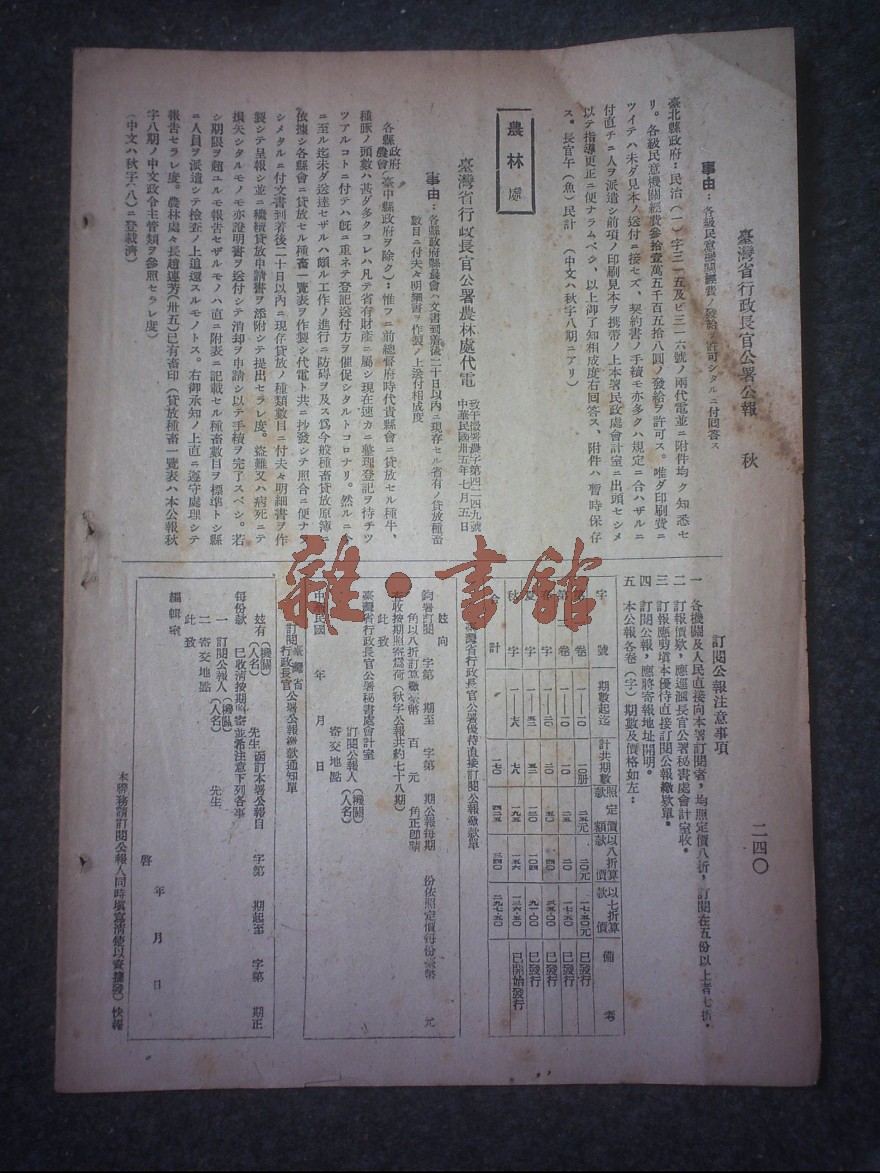 臺灣省行政長官公署公報 秋
二四〇
事由：各級民意機關經費ノ發給ヲ許可シタルニ付回答ス
臺北縣政府：民治（一）字三一五及ビ三一六號ノ兩代電並ニ附件均ク知悉セ
リ。各級民意機關經費參拾壹萬五千百五拾八圓ノ發給ヲ許可ス。唯ダ印刷費ニ
ツイテハ未ダ見本ノ送付ニ接セズ、契約書ノ手續モ亦多クハ規定ニ合ハザルニ
付直チニ人ヲ派遣シ前項ノ印刷見本ヲ携帶ノ上本署民政處會計室ニ出頭セシメ
以テ指導更正ニ便ナラムベシ、以上御了知相成度右回答ス、附件ハ暫時保存
ス。長官午（魚）民計 （中文ハ秋字八期ニアリ）
農林處
臺灣省行政長官公署農林處代電
致午微署農字第四二四九號
中華民國卅五年七月五日
事由：各縣政府縣農會ハ文書到着後二十日以內ニ現存セル省有ノ貸放種畜
數目ニ付夫々明細書ヲ作製ノ上送付相成度
各縣政府農會（臺中縣政府ヲ除ク）：惟フニ前總督府時代貴縣會ニ貸放セル種牛、
種豚ノ頭數ハ甚ダ多クコレハ凡テ省存財產ニ屬シ現在速カニ整理登記ヲ待チツ
ツアルコトニ付テハ旣ニ重ネテ登記送付方ヲ催促シタルトコロナリ。然ルニ今
ニ至ル迄未ダ送達セザルハ頗ル工作ノ進行ニ防碍ヲ及ス爲今般種畜貸放原簿ニ
依據シ各縣會ニ貸放セル種畜一覽表ヲ作製シ代電ト共ニ抄發シテ照合ニ便ナラ
シメタルニ付文書到着後二十日以內ニ現存貸放ノ種類數目ニ付夫々明細書ヲ作
製シテ呈報シ並ニ繼續貸放申請書ヲ添附シテ提出セラレ度。盜難又ハ病死ニテ
損失シタルモノモ亦證明書ヲ送付シテ消却ヲ申請シ以テ手續ヲ完了スベシ。若
シ期限ヲ超ユルモ報告セザルモノハ直ニ附表ニ記載セル種畜數目ヲ標準トシ縣
ニ人員ヲ派遣シテ檢査ノ上追還スルモノトス。右御承知ノ上直ニ遵守處理シテ
報告セラレ度。農林處々長趙連芳（卅五）已有畜印（貸放種畜一覽表ハ本公報秋
字八期ノ中文政令主管類ヲ參照セラレ度）
（中文ハ秋字（八）ニ登載濟）
訂閱公報注意事項
一 各機關及人民直接向本署訂閱者，均照定價八折，訂閱在五份以上者七折。
二 訂報價欵，應逕滙長官公署秘書處會計室收。
三 訂報應剪填本優待直接訂閱公報繳欵單。
四 訂閱公報，應將寄報地址開明。
五 本公報各卷（字）期數及價格如左：
字號 期數起迄 計共期數 照定價額款 以八折算價款 以七折算價款 備考
第一卷 一—一〇 一〇册 二五元 二〇元 一七·五〇元 已發行
第二卷 一—一〇 一〇 二五 二〇 一七·五〇 已發行
春字 一—二〇 二〇 五〇 四〇 三五·〇〇 已發行
夏字 一—五二 五二 一三〇 一〇四 九一·〇〇 已發行
秋字 一—七八 七八 一九五 一五六 一三六·五〇 已開始發行
合計 一七〇 四二五 三四〇 二九七·五〇
臺灣省行政長官公署優待直接訂閱公報繳款單
玆向
鈞署訂閱 字第 期至 字第 期公報每期 份依照定價每份臺幣 元
角以八折訂算繳臺幣 百 元 角正卽請
查收按期照寄爲荷（秋字公報共約七十八期）
此致
臺灣省行政長官公署秘書處會計室
訂閱公報人（機關）（人名）
寄交地點
中華民國 年 月 日
訂閱臺灣省行政長官公署公報繳款通知單
玆有（機關）（人名） 先生函訂本署公報自 字第 期起至 字第 期正
每份款 已收淸按期照寄並希注意下列各事
一 訂閱公報人（機關）（人名） 先生
二 寄交地點
此致
編輯室
啓 年 月 日
本聯務請訂閱公報人同時填寫淸楚以資據發
雜·書館